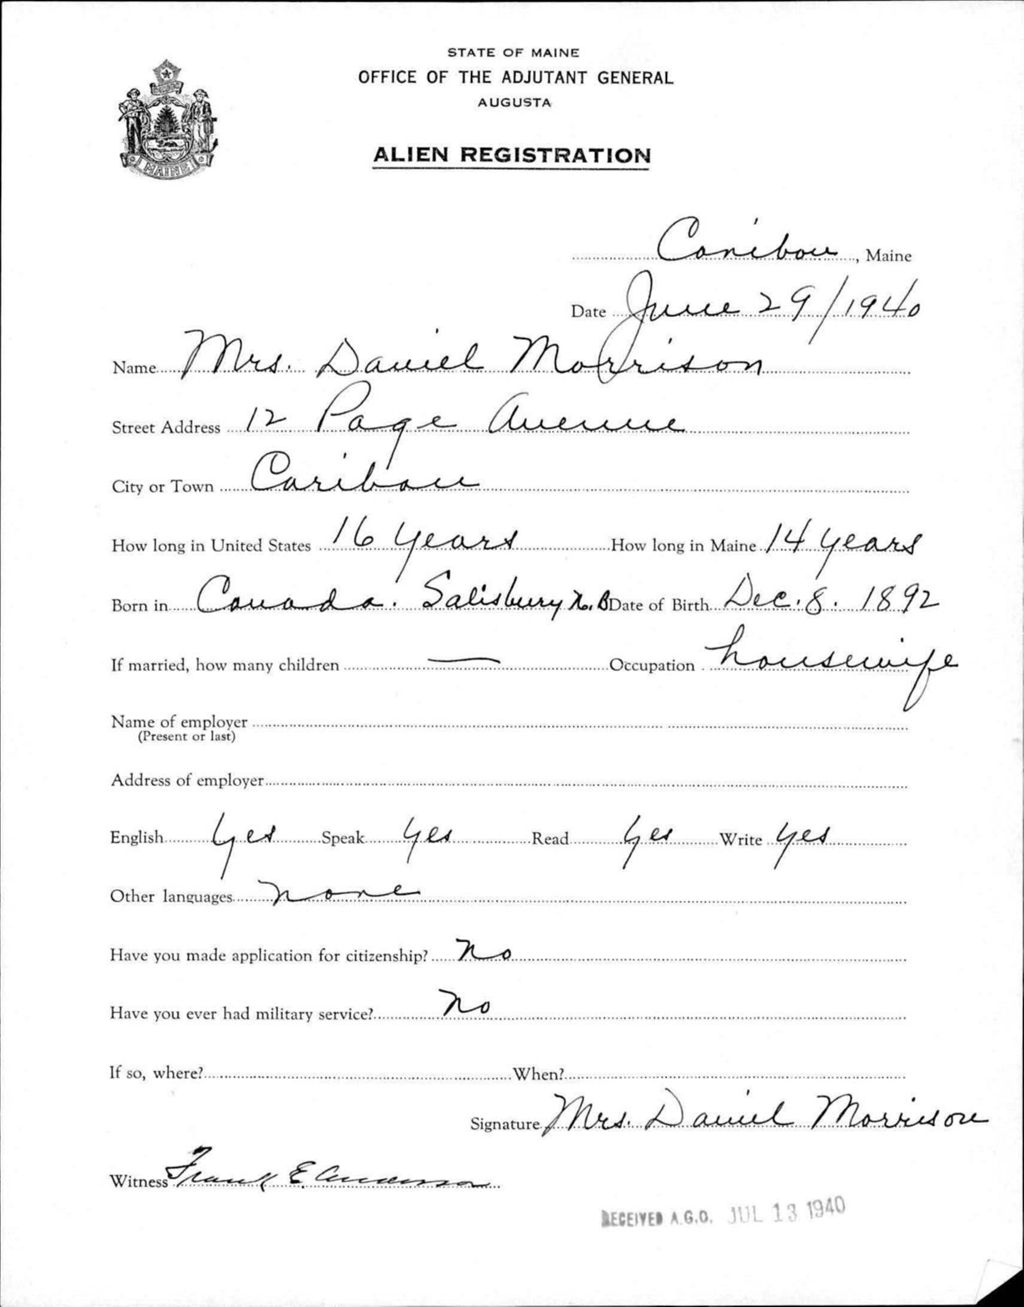 STATE OF MAINE
OFFICE OF THE ADJUTANT GENERAL
AUGUSTA
ALIEN REGISTRATION
MAINE
Caribou, Maine
Date June 29/1940
Name Mrs. Daniel Morrison
Street Address 12 Page Avenue
City or Town Caribou
How long in United States 16 years How long in Maine 14 years
Born in Canada. Salisbury N.B Date of Birth Dec. 8. 1892
If married, how many children — Occupation housewife
Name of employer
(Present or last)
Address of employer
English yes Speak yes Read yes Write yes
Other languages none
Have you made application for citizenship? No
Have you ever had military service? No
If so, where? When?
Signature Mrs. Daniel Morrison
Witness Frank E Anderson
RECEIVED A.G.O. JUL 13 1940